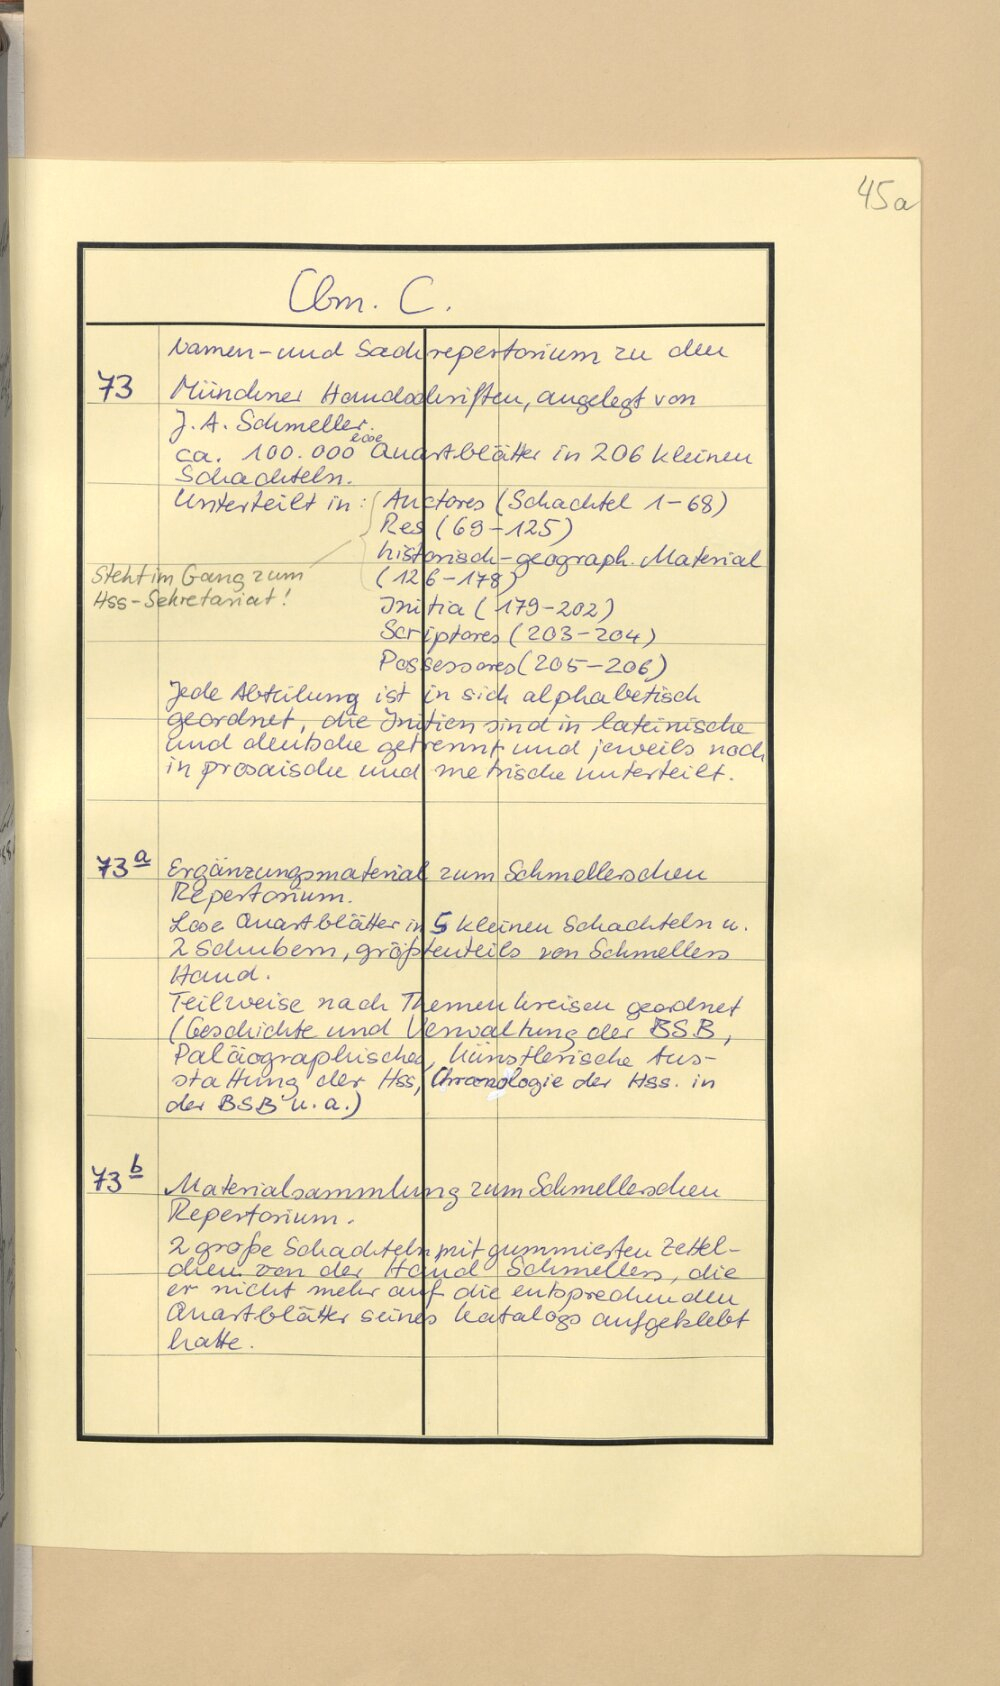 45a
Cbm. C.
Namen- und Sachrepertorium zu den
73 Münchner Handschriften, angelegt von
J. A. Schmeller.
ca. 100.000 lose Quartblätter in 206 kleinen
Schachteln.
Unterteilt in: Auctores (Schachtel 1-68)
Res (69-125)
historisch-geograph. Material
(126-178)
Steht im Gang zum
Hss-Sekretariat!
Initia (179-202)
Scriptores (203-204)
Possessores (205-206)
Jede Abteilung ist in sich alphabetisch
geordnet, die Initien sind in lateinische
und deutsche getrennt und jeweils noch
in prosaische und metrische unterteilt.
73a Ergänzungsmaterial zum Schmellerschen
Repertorium.
Lose Quartblätter in 5 kleinen Schachteln u.
2 Schubern, größtenteils von Schmellers
Hand.
Teilweise nach Themenkreisen geordnet
(Geschichte und Verwaltung der BSB,
Paläographisches, künstlerische Aus-
stattung der Hss, Chronologie der Hss. in
der BSB u. a.)
73b Materialsammlung zum Schmellerschen
Repertorium.
2 große Schachteln mit gummierten Zettel-
chen von der Hand Schmellers, die
er nicht mehr auf die entsprechenden
Quartblätter seines Katalogs aufgeklebt
hatte.